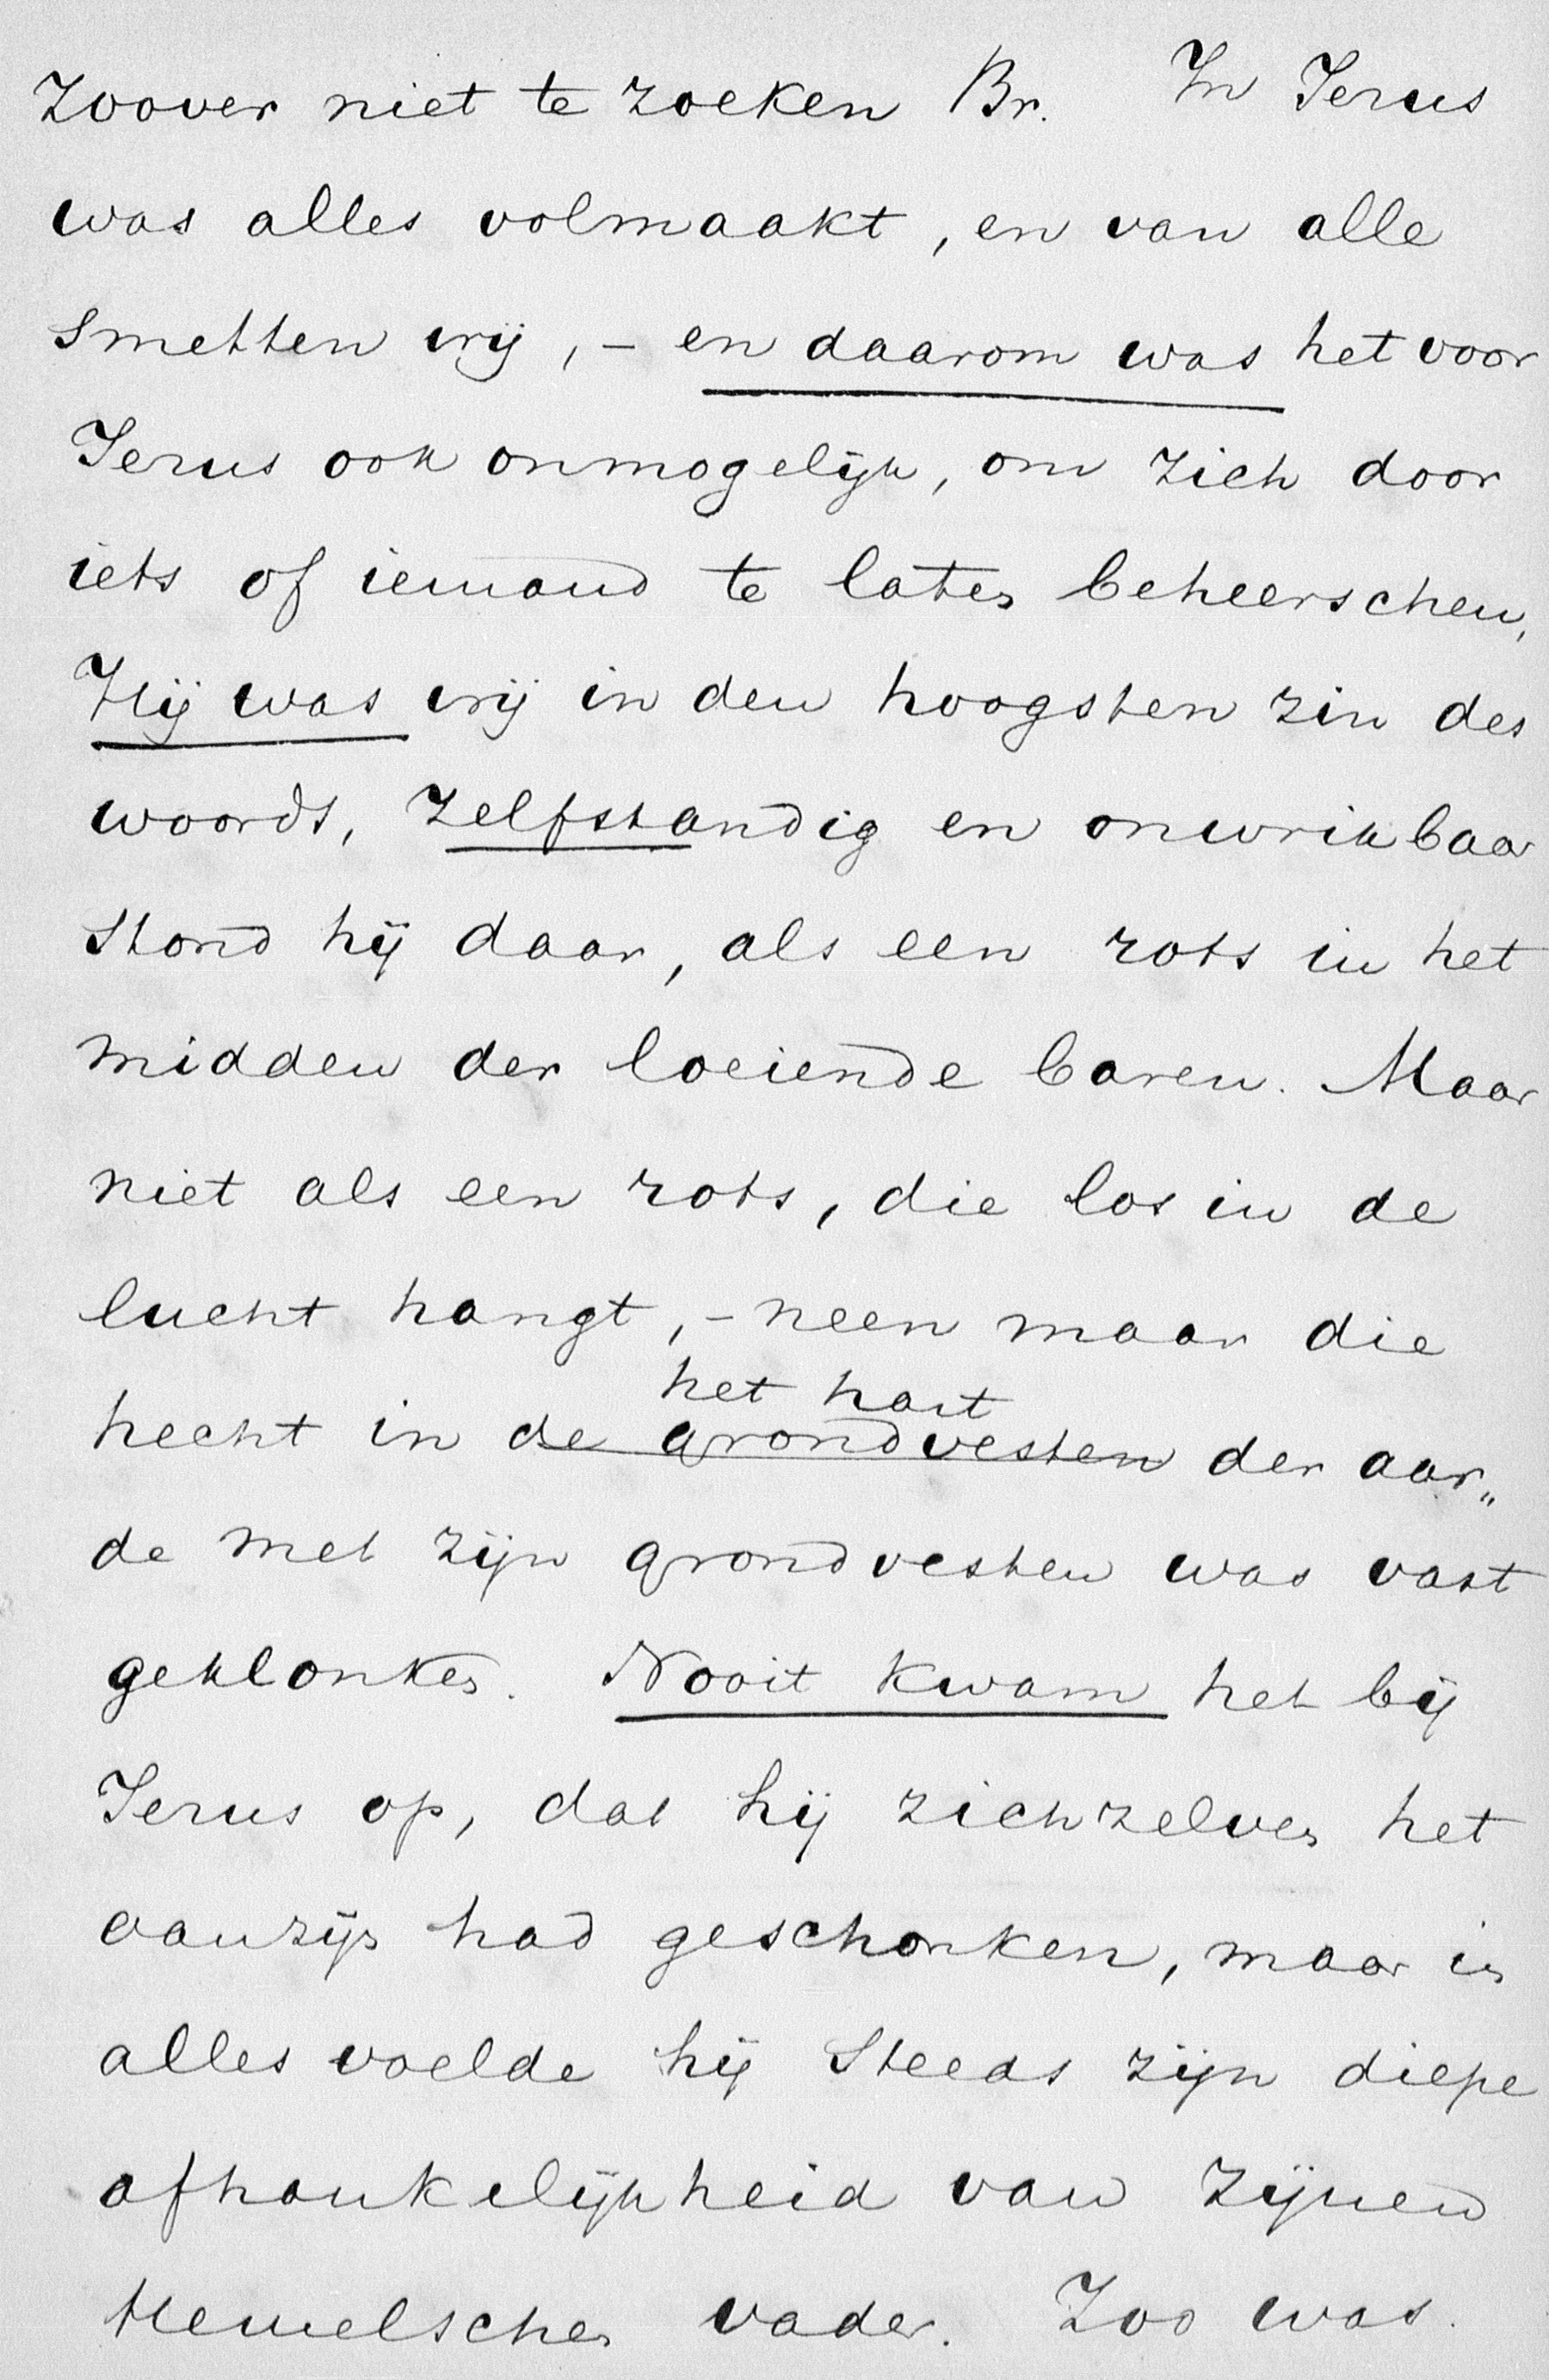 Zoover niet te zoeken Br. In Jezus
was alles volmaakt, en van alle
smetten vrij, – en daarom was het voor
Jezus ook onmogelijk, om zich door
iets of iemand te laten beheerschen,
Hij was vrij in den hoogsten zin des
woords, zelfstandig en onwrikbaar
stond hij daar, als een rots in het
midden der loeiende baren. Maar
niet als een rots, die los in de
lucht hangt, – neen maar die
het hart
hecht in de grondvesten der aar„
de met zijn grondvesten was vast
geklonken. Nooit kwam het bij
Jezus op, dat hij zichzelven het
aanzijn had geschonken, maar in
alles voelde hij steeds zijn diepe
afhankelijkheid van zijnen
Hemelschen vader. Zoo was